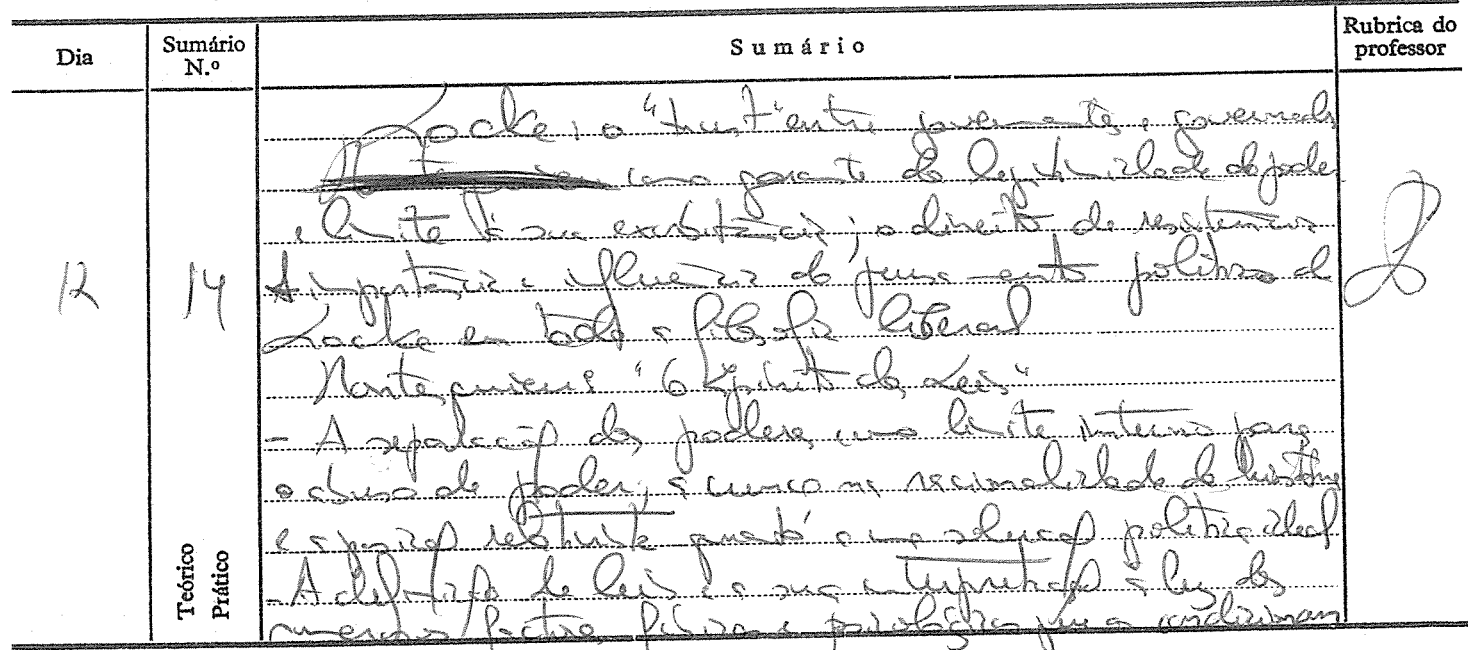 Dia
Sumário N.º
Sumário
Rubrica do professor
12
14
Teórico
Prático
Locke: o "trust" entre governantes e governados
como garante da legitimidade do poder
e limite à sua exorbitância; o direito de resistência
A importância e influência do pensamento político de
Locke em toda a filosofia liberal
Montesquieu: "O Espírito das Leis"
- A separação dos poderes como limite interno para
o abuso de poder; a crença na racionalidade da história
e a posição relativista quanto a uma solução política ideal
- A definição de leis e a sua interpretação à luz dos
numerosos factores físicos e psicológicos que as condicionam